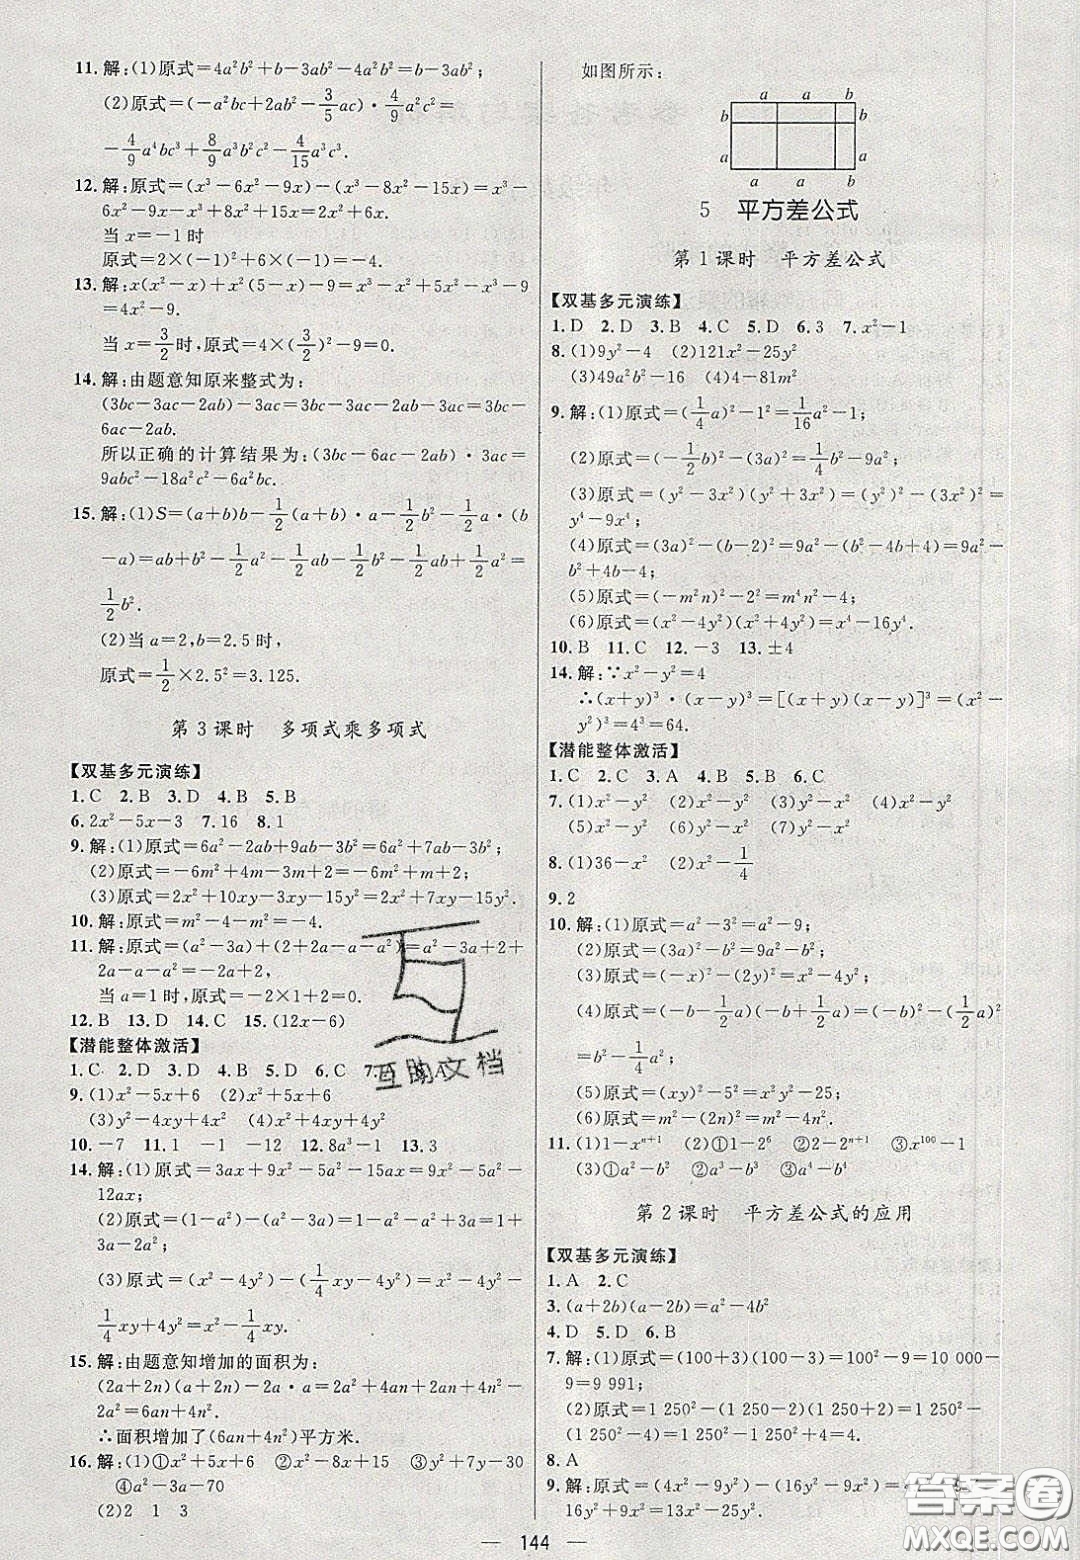 11. 解:(1)原式=4a²b²+b-3ab²-4a²b²=b-3ab²;
(2)原式=(-a²bc+2ab²-3/5ac)·4/9a²c²=
-4/9a⁴bc³+8/9a³b²c²-4/15a³c³.
12. 解:原式=(x³-6x²-9x)-(x³-8x²-15x)=x³-
6x²-9x-x³+8x²+15x=2x²+6x
当x=-1时
原式=2×(-1)²+6×(-1)=2-6=-4.
13. 解:x(x²-x)+x²(5-x)-9=x³-x²+5x²-x³-9=
4x²-9.
当x=3/2时,原式=4×(3/2)²-9=0.
14. 解:由题意知原来整式为:
(3bc-3ac-2ab)-3ac=3bc-3ac-2ab-3ac=3bc-
6ac-2ab.
所以正确的计算结果为:(3bc-6ac-2ab)·3ac=
9abc²-18a²c²-6a²bc.
15. 解:(1)S=(a+b)b-1/2(a+b)·a-1/2b²-1/2a·(b
-a)=ab+b²-1/2a²-1/2ab-1/2b²-1/2ab+1/2a²=
1/2b².
(2)当a=2,b=2.5时,
原式=1/2×2.5²=3.125.
第3课时 多项式乘多项式
【双基多元演练】
1. C 2. B 3. D 4. B 5. B
6. 2x²-5x-3 7. 16 8. 1
9. 解:(1)原式=6a²-2ab+9ab-3b²=6a²+7ab-3b²;
(2)原式=-6m²+4m-3m+2=-6m²+m+2;
(3)原式=2x²+10xy-3xy-15y²=2x²+7xy-15y².
10. 解:原式=m²-4-m²=-4.
11. 解:原式=(a²-3a)+(2+2a-a-a²)=a²-3a+2+
2a-a-a²=-2a+2,
当a=1时,原式=-2×1+2=0.
12. B 13. D 14. C 15. (12x-6)
【潜能整体激活】
1. C 2. B 3. D 4. B 5. B 6. C 7. A 8. A
9. (1)x²-5x+6 (2)x²+5x+6
(3)y²-4xy+4x² (4)x²+4xy+4y²
10. -7 11. 1 -1 -12 12. 8a³-1 13. 3
14. 解:(1)原式=3ax+9a²-5a²-15ax=4a²-
12ax;
(2)原式=(1-a²)-(a²-3a)=1-a²-a²+3a=1+
3a-2a²;
(3)原式=(x²-4y²)-(1/4xy-4y²)=x²-4y²-
1/4xy+4y²=x²-1/4xy.
15. 解:由题意知增加的面积为:
(2a+2n)(a+2n)-2a·a=2a²+4an+2an+4n²-
2a²=6an+4n².
∴面积增加了(6an+4n²)平方米.
16. 解:(1)①x²+5x+6 ②x²+2x-15 ③y²+7y-30
④a²-3a-70
(2)2 1 3
如图所示:
a a b
b b
a a
a a b
5 平方差公式
第1课时 平方差公式
【双基多元演练】
1. D 2. D 3. B 4. C 5. D 6. 3 7. x²-1
8. (1)9y²-4 (2)121x²-25y²
(3)49a²b²-16 (4)4-81m²
9. 解:(1)原式=(1/4a)²-1²=1/16a²-1;
(2)原式=(-1/2b)²-(3a)²=1/4b²-9a²;
(3)原式=(y²-3x²)(y²+3x²)=(y²)²-(3x²)²=
y⁴-9x⁴;
(4)原式=(3a)²-(b-2)²=9a²-(b²-4b+4)=9a²-
b²+4b-4;
(5)原式=(-m²n)²-2²=m⁴n²-4;
(6)原式=(x²-4y²)(x²+4y²)=x⁴-16y⁴.
10. B 11. C 12. -3 13. ±4
14. 解:∵x²-y²=4
∴(x+y)³·(x-y)³=[(x+y)(x-y)]³=(x²-
y²)³=4³=64.
【潜能整体激活】
1. C 2. C 3. A 4. B 5. B 6. C
7. (1)x²-y² (2)x²-y² (3)y²-x² (4)x²-y²
(5)x²-y² (6)y²-x² (7)x²-y²
8. (1)36-x² (2)x²-1/4
9. 2
10. 解:(1)原式=a²-3²=a²-9;
(2)原式=(3a)²-b²=9a²-b²;
(3)原式=(-x)²-(2y)²=x²-4y²;
(4)原式=(-b-1/2a)(-b+1/2a)=(-b)²-(1/2a)²
=b²-1/4a²;
(5)原式=(xy)²-5²=x²y²-25;
(6)原式=m²-(2n)²=m²-4n².
11. (1)1-xⁿ⁺¹ (2)①1-2⁶ ②2-2ⁿ⁺¹ ③x¹⁰⁰-1
(3)①a²-b² ②a³-b³ ③a⁴-b⁴
第2课时 平方差公式的应用
【双基多元演练】
1. A 2. C
3. (a+2b)(a-2b)=a²-4b²
4. D 5. D 6. B
7. 解:(1)原式=(100+3)(100-3)=100²-9=10 000-
9=9 991;
(2)原式=1 250²-(1 250-2)(1 250+2)=1 250²-
(1 250²-4)=1 250²-1 250²+4=4.
8. A
9. 解:原式=(4x²-9y²)-(16y²-9x²)=4x²-9y²-
16y²+9x²=13x²-25y².
144
互助文档
答案圈
MXQE.COM